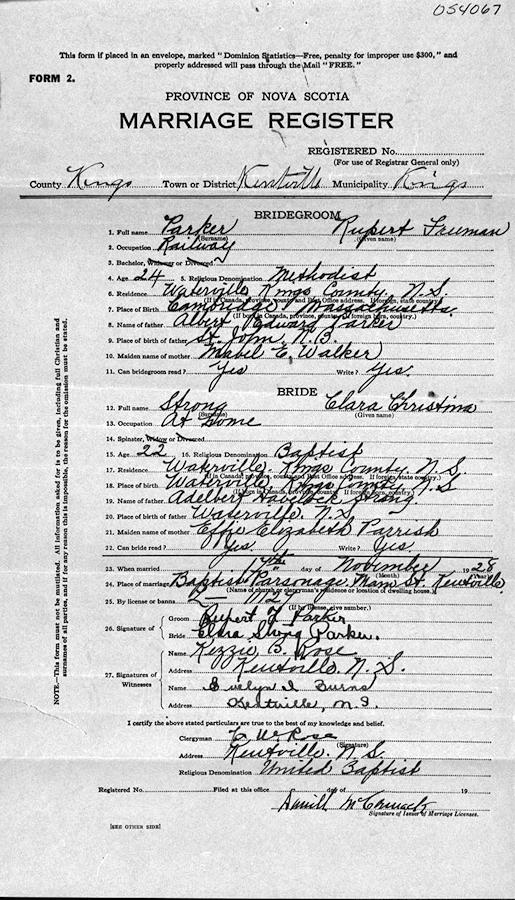 054067
This form if placed in an envelope, marked "Dominion Statistics—Free, penalty for improper use $300," and
properly addressed will pass through the Mail "FREE."
FORM 2.
PROVINCE OF NOVA SCOTIA
MARRIAGE REGISTER
REGISTERED No.
(For use of Registrar General only)
County Kings Town or District Kentville Municipality Kings
BRIDEGROOM
1. Full name Parker Rupert Freeman
(Surname) (Given name)
2. Occupation Railway
3. Bachelor, Widower or Divorced
4. Age 24 5. Religious Denomination Methodist
6. Residence Waterville Kings County, N.S.
(If in Canada, province, county and Post Office address. If foreign, state country)
7. Place of Birth Cambridge Massachusetts.
(If born in Canada, province, county. If foreign born, country.)
8. Name of father Albert Edward Parker
9. Place of birth of father St. John, N.B.
10. Maiden name of mother Mabel E. Walker
11. Can bridegroom read? Yes Write? Yes.
BRIDE
12. Full name Strong Clara Christina
(Surname) (Given name)
13. Occupation At Home
14. Spinster, Widow or Divorced
15. Age 22 16. Religious Denomination Baptist
17. Residence Waterville, Kings County, N.S.
(If in Canada, province, county and Post Office address. If foreign state country)
18. Place of birth Waterville, Kings County, N.S
19. Name of father Adelbert Havelock Strong
20. Place of birth of father Waterville, N.S
21. Maiden name of mother Effie Elizabeth Parrish
22. Can bride read? Yes. Write? Yes.
23. When married 14th day of November 1928
(Month) (Year)
24. Place of marriage Baptist Parsonage, Main St. Kentville
(Name of church or clergyman's residence or location of dwelling house.)
25. By license or banns
(If by license, give number.)
26. Signature of
Groom Rupert F Parker
Bride Clara Strong Parker.
27. Signatures of Witnesses
Name Kezzie B. Rose
Address Kentville, N.S.
Name Evelyn I Burns
Address Kentville, N.S.
I certify the above stated particulars are true to the best of my knowledge and belief.
Clergyman Rose
(Signature)
Address Kentville, N.S.
Religious Denomination United Baptist
Registered No. Filed at this office day of 19
Signature of Issuer of Marriage Licenses.
[SEE OTHER SIDE]
NOTE.—This form must not be mutilated. All information asked for is to be given, including full Christian and
surnames of all parties, and if for any reason this is impossible, the reason for the omission must be stated.